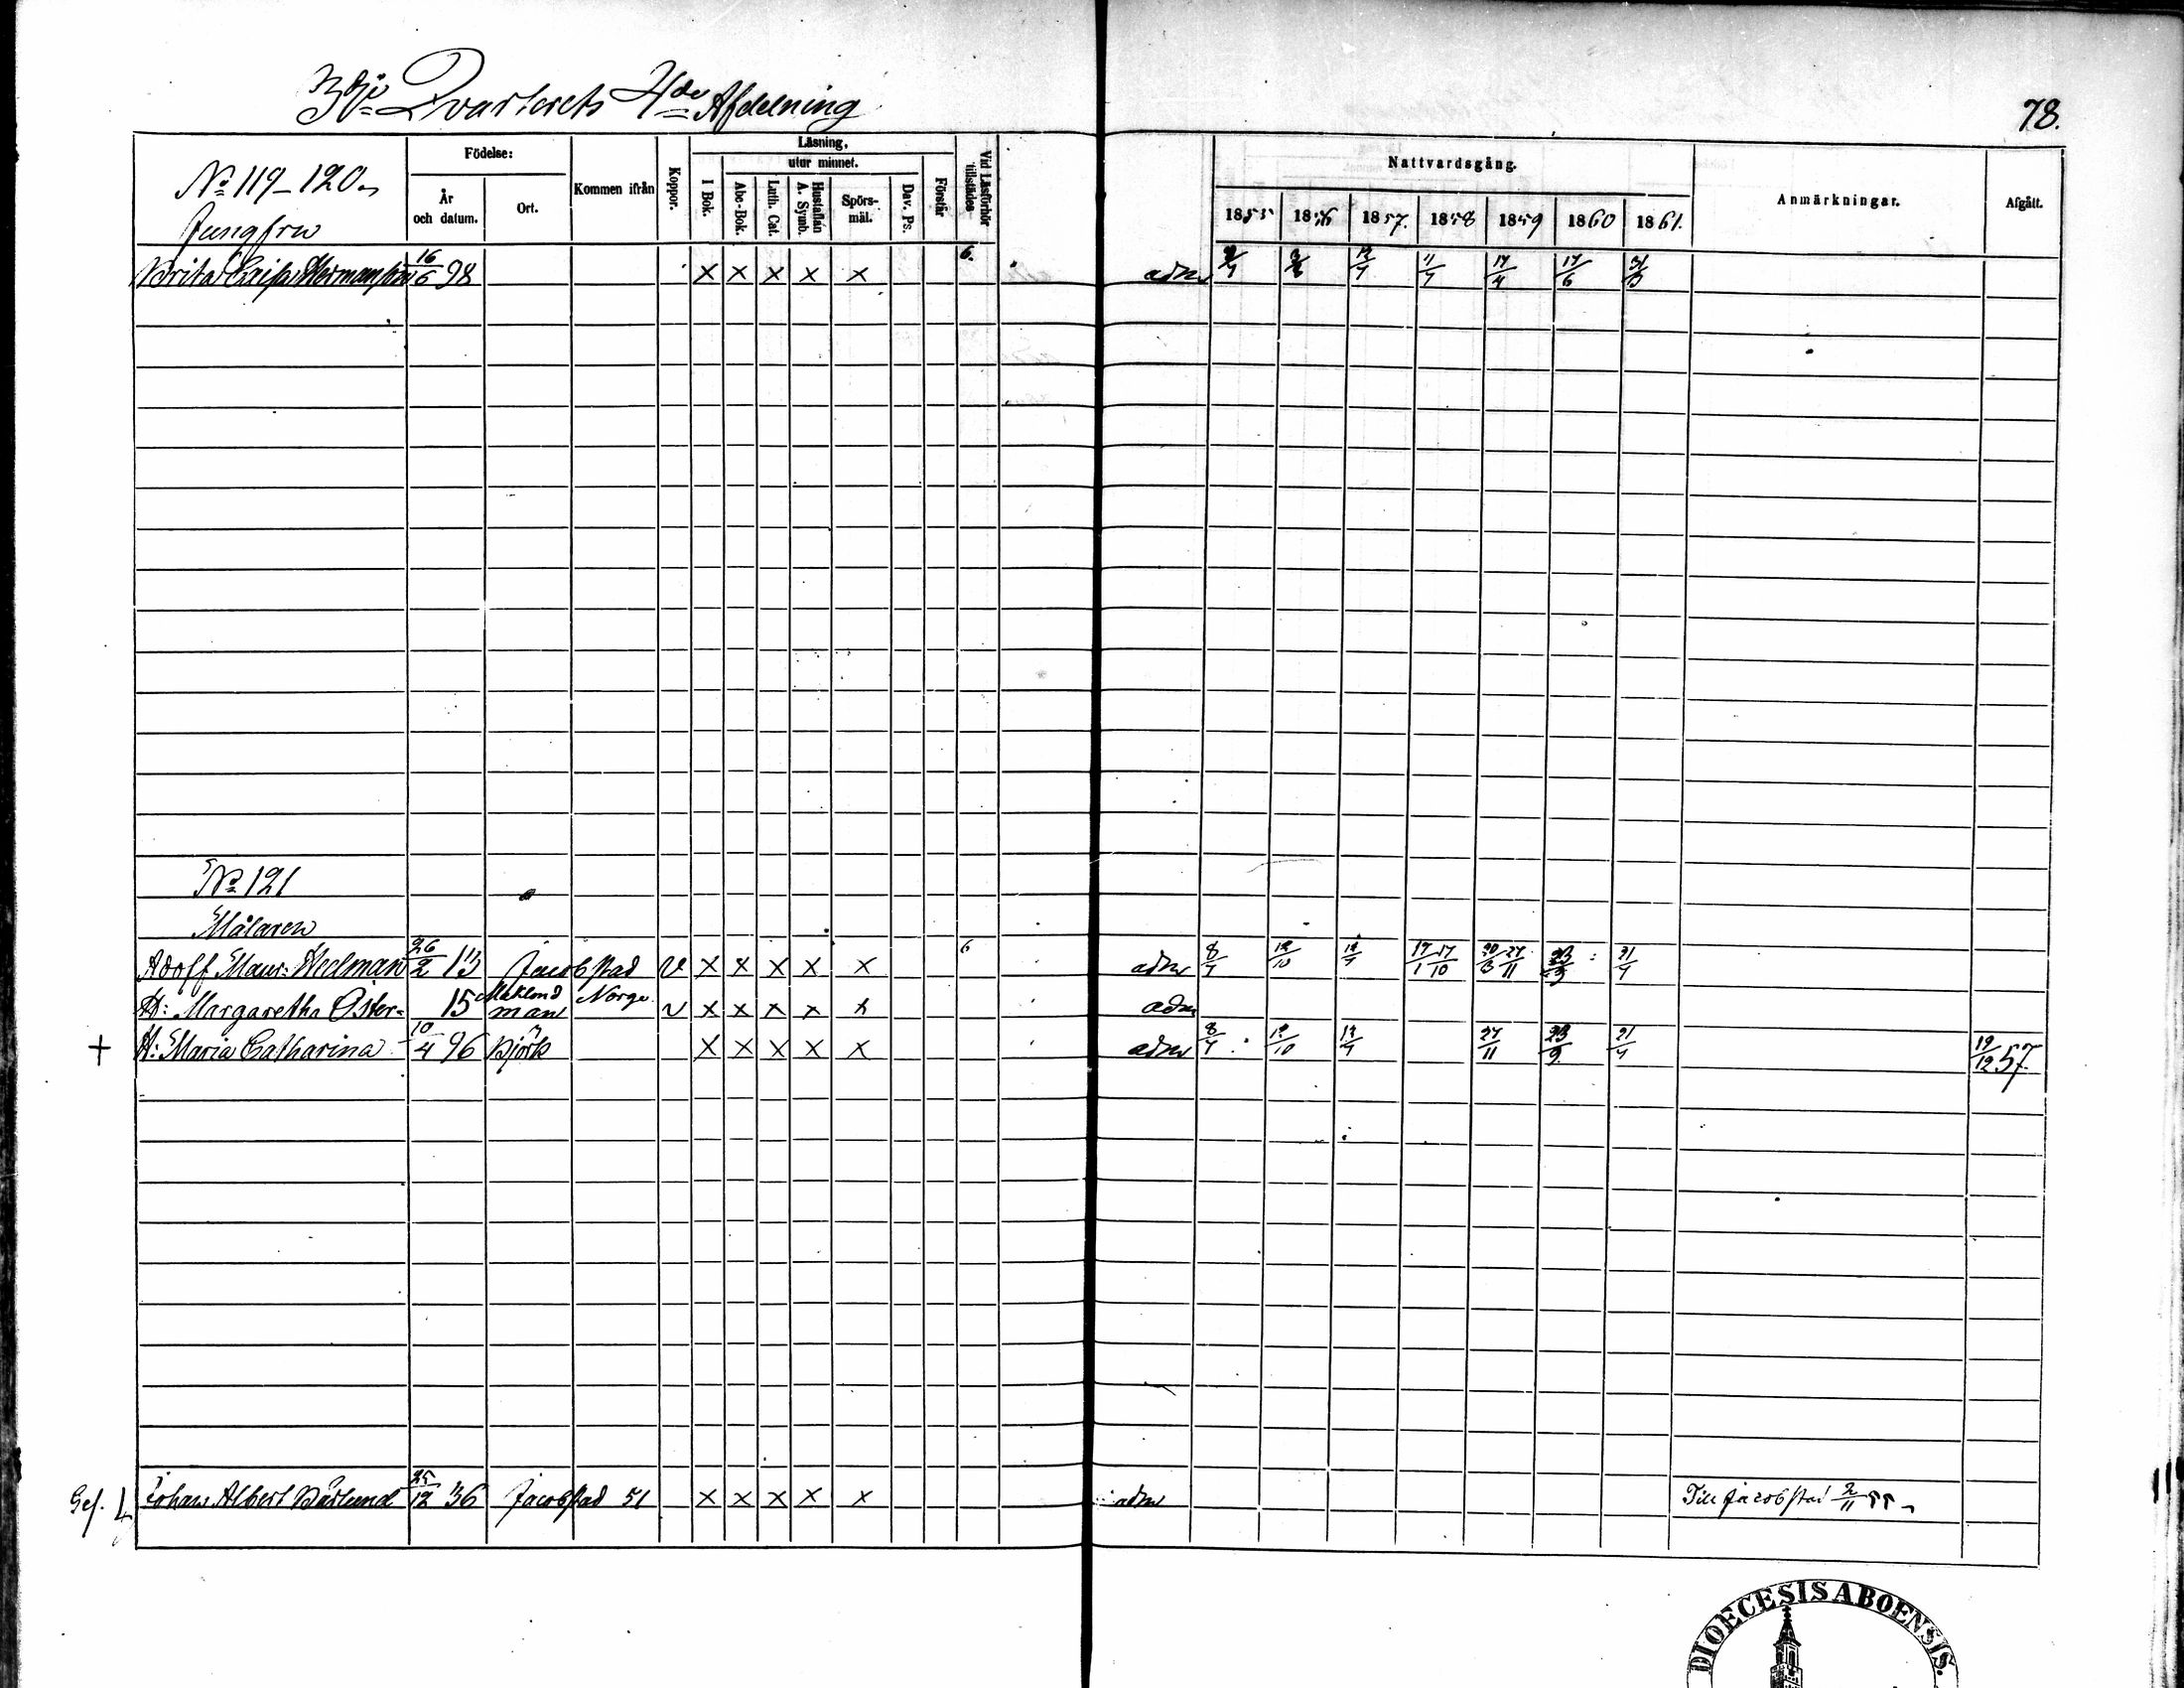 3dje Qvarterets 4de Afdelning
78.
No 119–120.
Jungfru
Födelse:
År och datum.
Ort.
Kommen ifrån
Koppor.
Läsning,
utur minnet.
I Bok.
Abc-Bok.
Luth. Cat.
Hustaflan A. Symb.
Spörs-mål.
Dav. Ps.
Förstår
Vid Läsförhör tillstädes
Nattvardsgång.
1855 1856 1857. 1858 1859 1860 1861.
Anmärkningar.
Afgått.
Brita Caisa Hermanson 16/6 98 × × × × × 6. adm 12/7 11/7 17/4 17/6 31/3
No 121
Målaren
Adolf Maur: Hedman 26/2 13 Jacobstad v × × × × × 6 adm 8/7 12/10 12/7 17/1 17/10 27/11 23/9 21/7
H: Margaretha Öster= 15 man Norge v × × × × × adm
† H: Maria Catharina 10/4 96 Björk × × × × × adm 8/7 12/10 12/7 27/11 23/9 21/7 19/12 57.
Gef. L Johan Albert Bärlund 25/12 36 Jacobstad 51 × × × × × adm Till Jacobstad 2/11 55
DIOECESIS ABOENSIS.